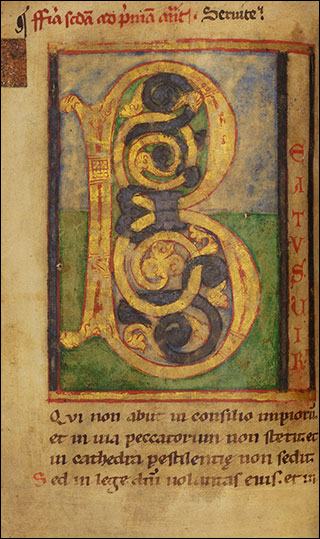 Servite.
B
EATUSUIR
Qui non abiit in consilio impioru
et in uia peccatorum non stetit. et
in cathedra pestilentię non sedit.
Sed in lege dñi uoluntas eius. et in